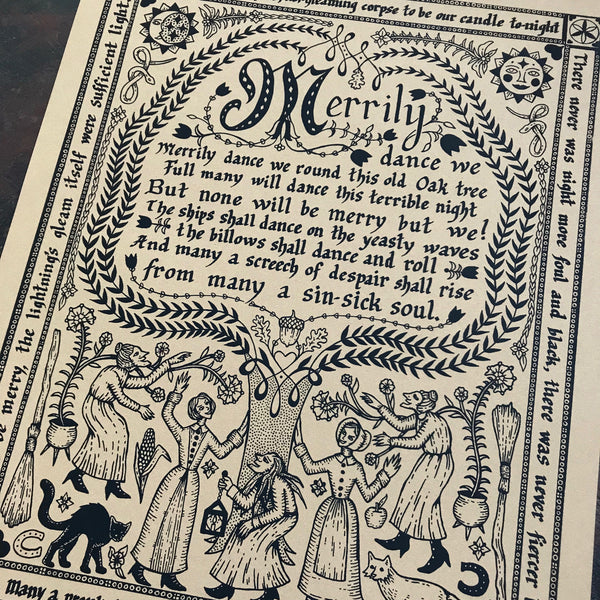 gleaming corpse to be our candle to-night
Merrily
dance we
Merrily dance we round this old Oak tree
Full many will dance this terrible night
But none will be merry but we!
The ships shall dance on the yeasty waves
the billows shall dance and roll
And many a screech of despair shall rise
from many a sin-sick soul.
There never was night more foul and black, there was never fiercer
be merry, the lightnings gleam itself were sufficient light
Many a